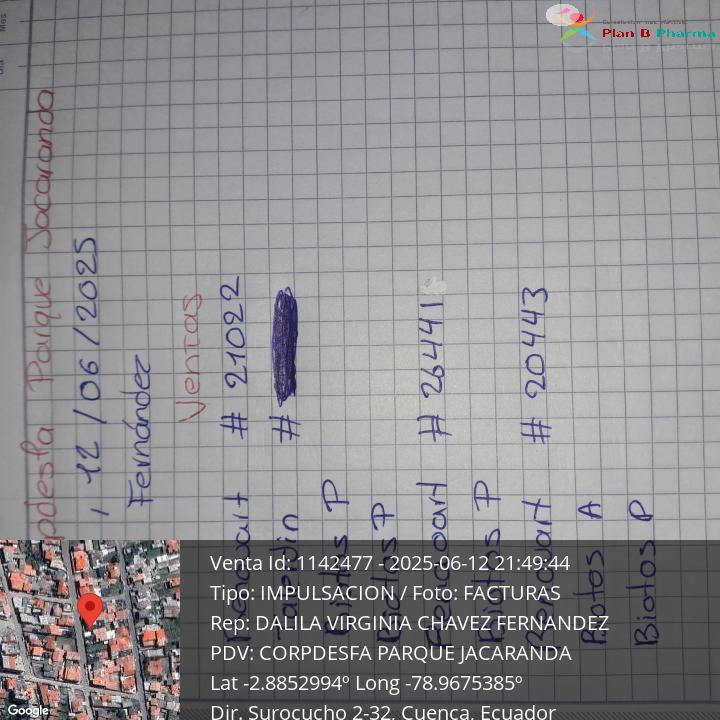 Plan B Pharma
Parque Jacaranda
12/06/2025
Fernández
Ventas
# 21022
#
Biotos P
Biotos P
# 26441
Biotos P
# 20443
Biotos A
Biotos P
Venta Id: 1142477 - 2025-06-12 21:49:44
Tipo: IMPULSACION / Foto: FACTURAS
Rep: DALILA VIRGINIA CHAVEZ FERNANDEZ
PDV: CORPDESFA PARQUE JACARANDA
Lat -2.8852994º Long -78.9675385º
Dir. Surocucho 2-32, Cuenca, Ecuador
Google